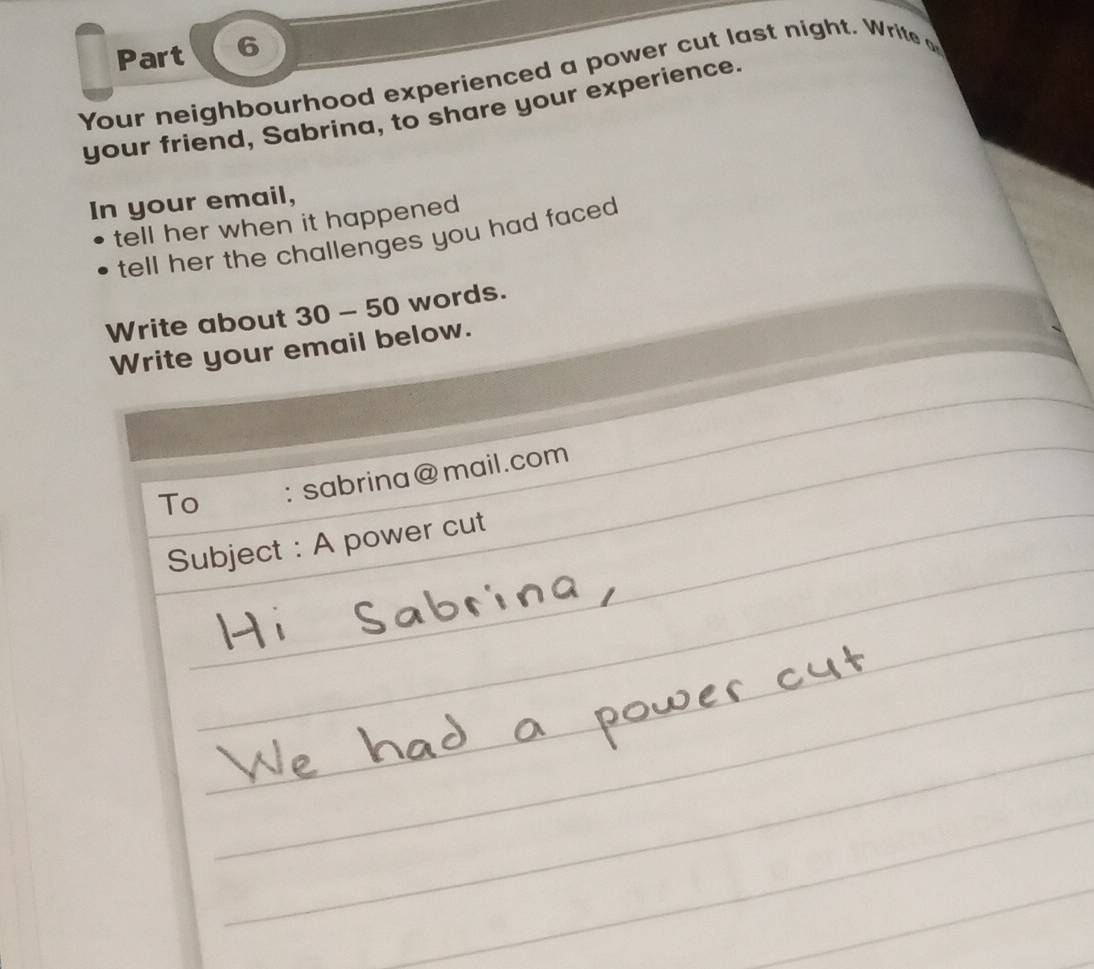 Part 6
Your neighbourhood experienced a power cut last night. Write
your friend, Sabrina, to share your experience.
In your email,
• tell her when it happened
• tell her the challenges you had faced
Write about 30 – 50 words.
Write your email below.
To : sabrina@mail.com
Subject : A power cut
Hi Sabrina,
We had a power cut